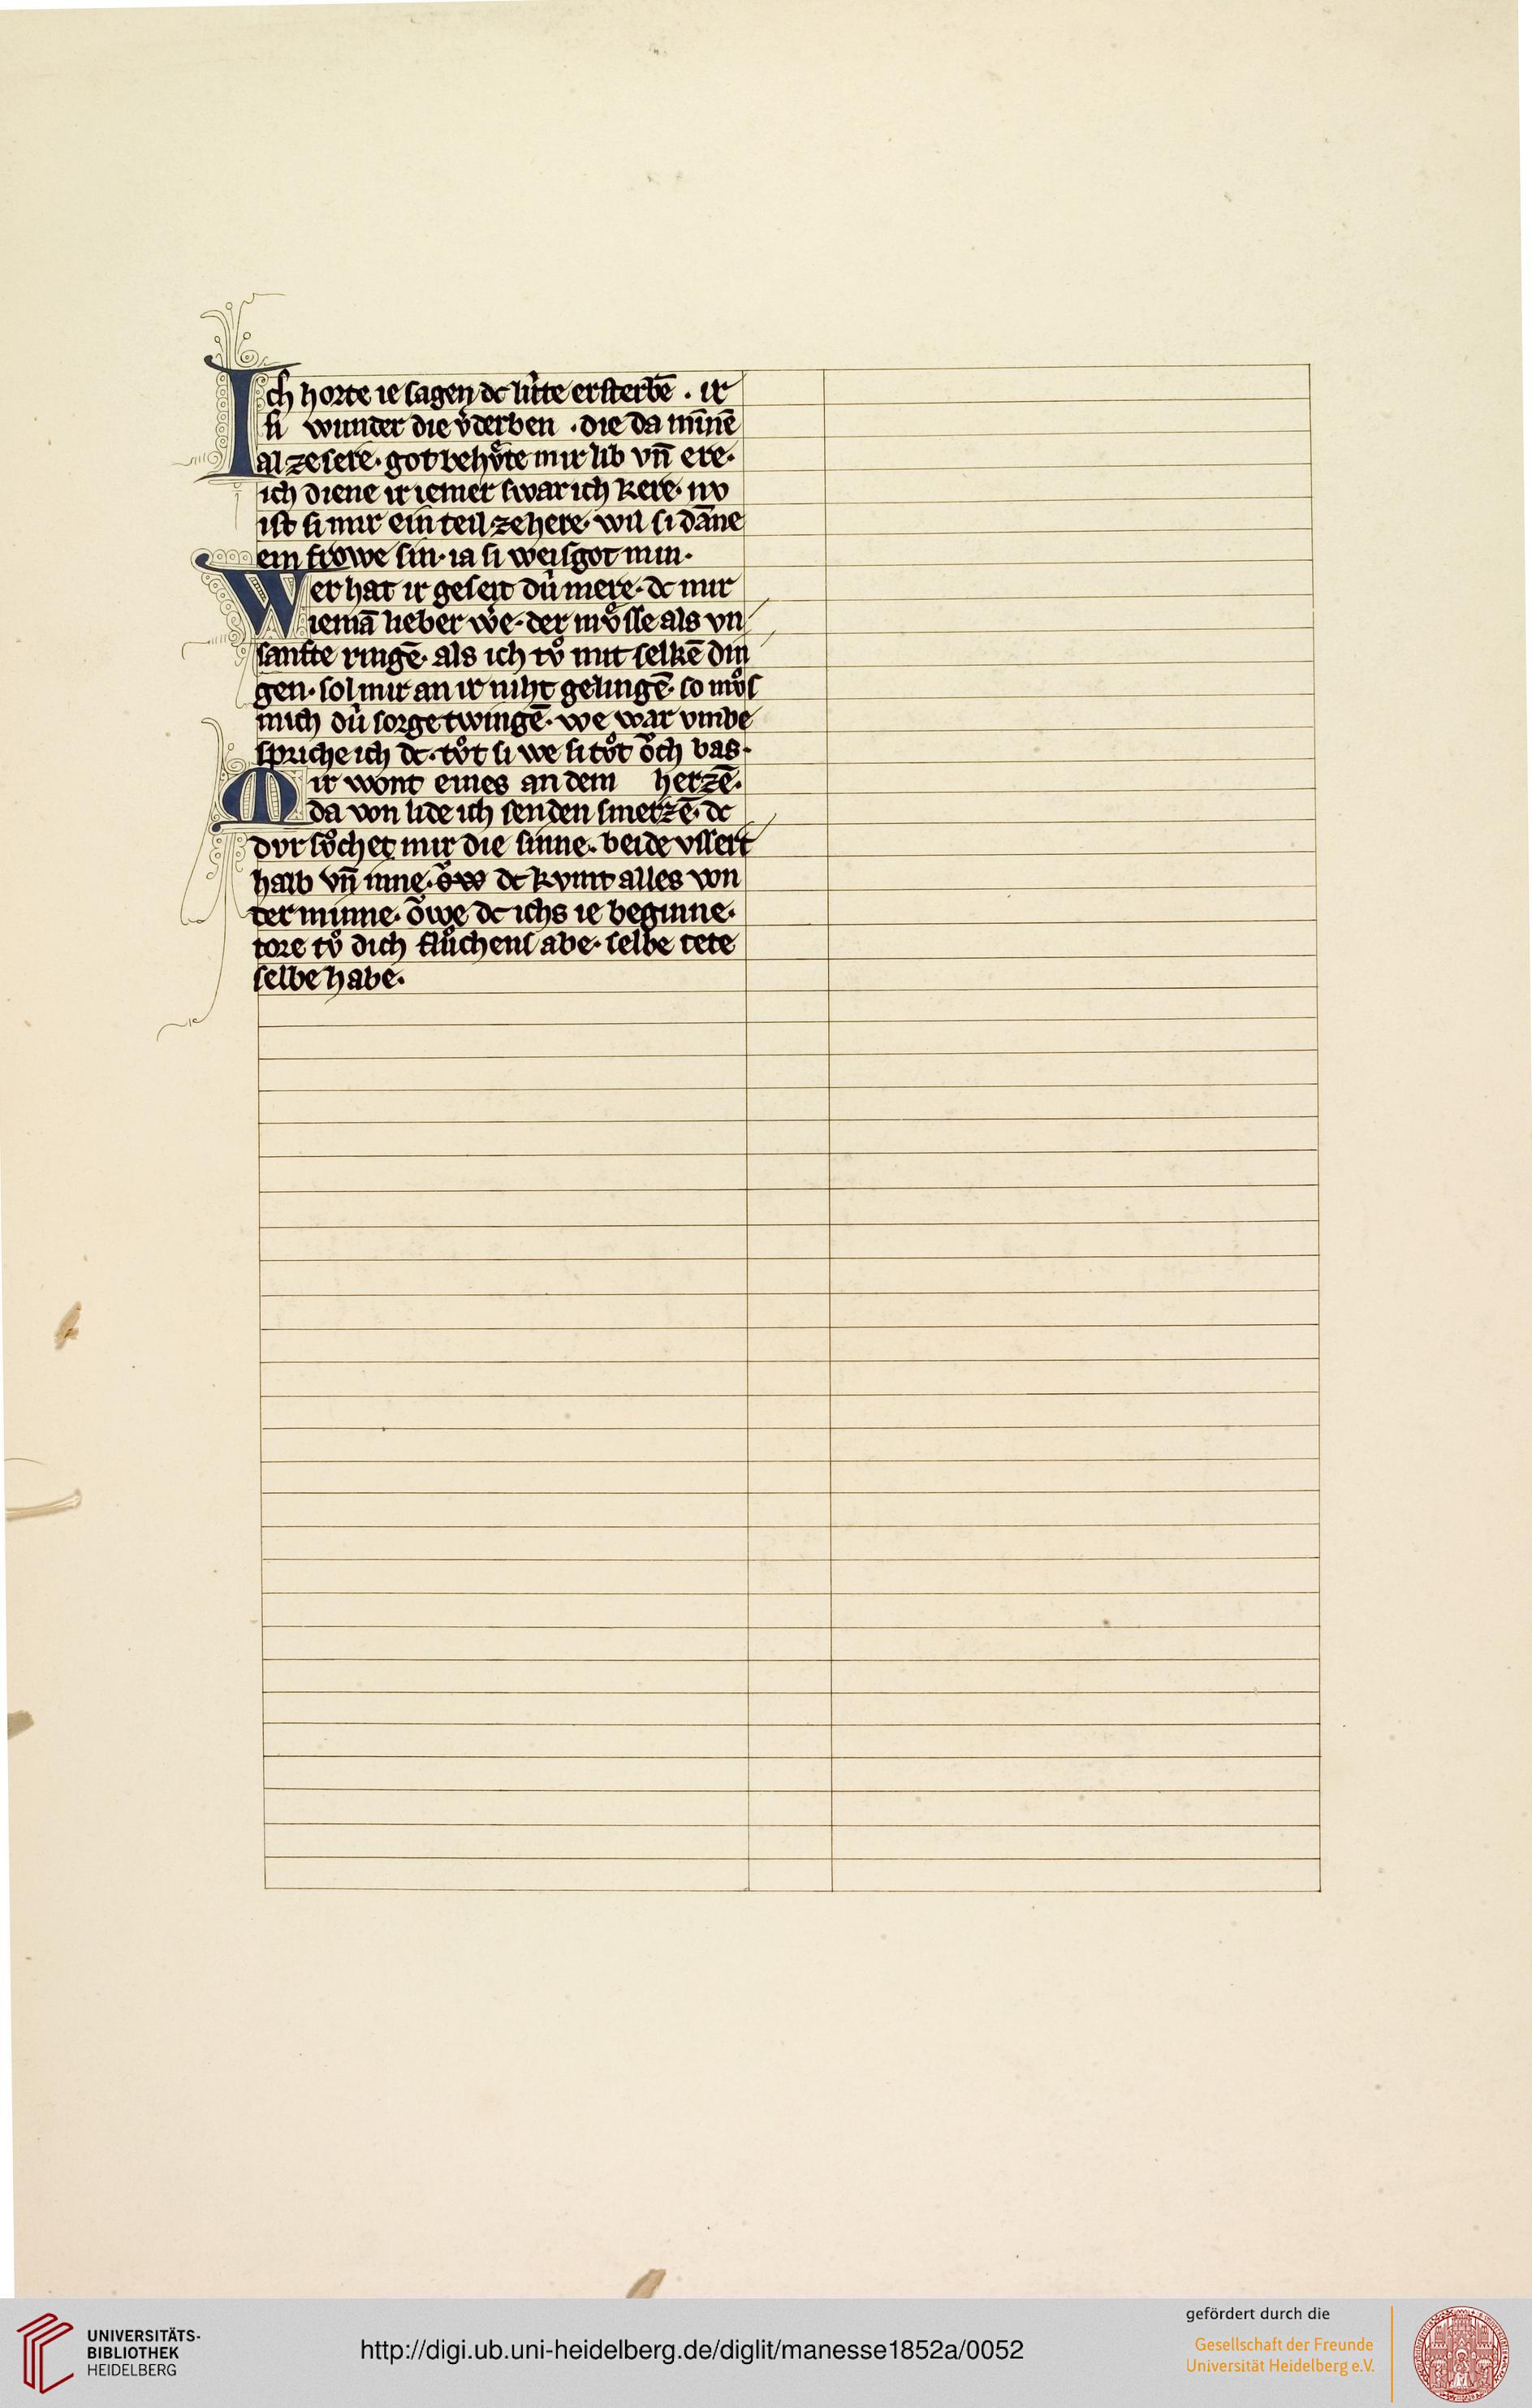 Ich horte ie sagen dc lúte ersterbē . ir
si wunder die v̓derben . die da minnē
al ze sere. got behv̊te mir lib vn̄ ere.
ich diene ir iemer swar ich kere. nv
ist si mir ein teil ze here. wil si dāne
ein frowe sin. ia si weisgot min.
Wer hat ir geseit dú mere. dc mir
iemā lieber we̓. der mv̊sse als vn
sanfte ringē. als ich tv̊ mit selkē din
gen. sol mir an ir niht gelingē. so mv̊s
mich dú sorge twingē. we war vmbe
spriche ich dc. tv̊t si we si tv̊t ǒch bas.
Mir wont eines an dem herzē.
da von lide ich senden smerzē. dc
dvr sv̊chet mir die sinne. beide vssert
halb vn̄ inne. ǒw dc kvmt alles von
der minne. ǒwe dc ichs ie beginne.
tore tv̊ dich flůchens abe. selbe tete
selbe habe.
UNIVERSITÄTS-
BIBLIOTHEK
HEIDELBERG
http://digi.ub.uni-heidelberg.de/diglit/manesse1852a/0052
gefördert durch die
Gesellschaft der Freunde
Universität Heidelberg e.V.